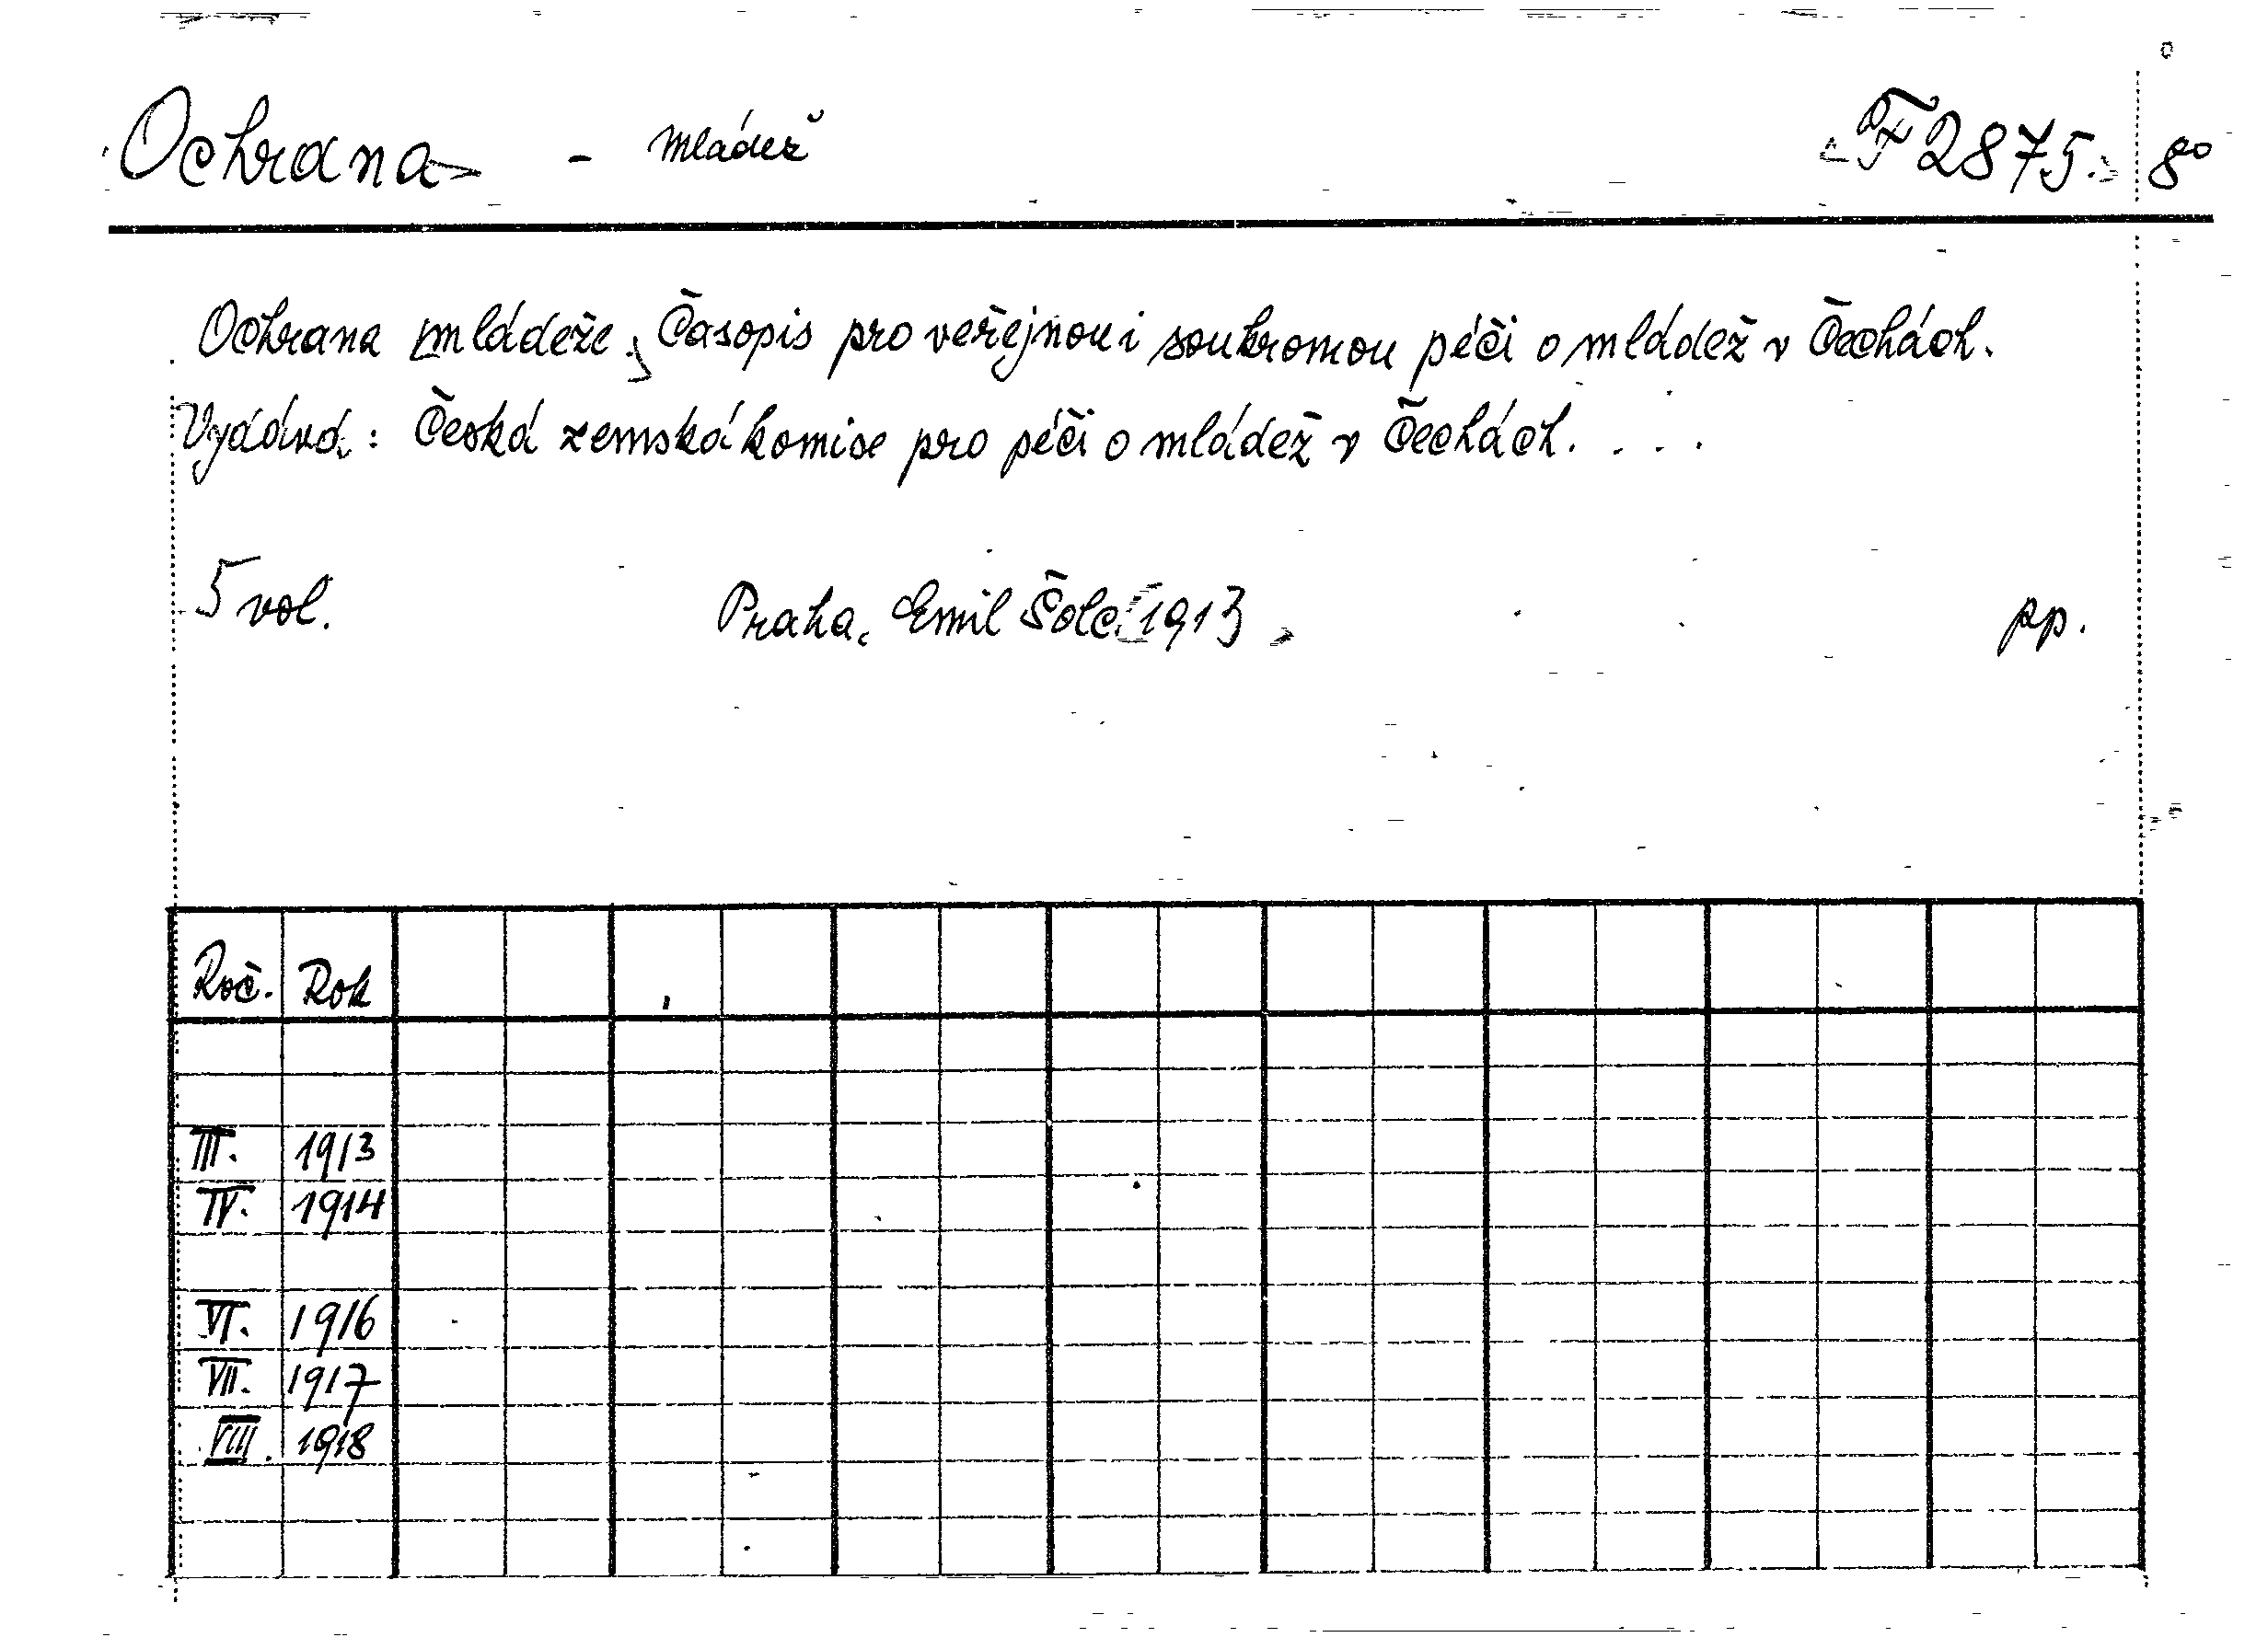 Ochrana - mládež F 2875. 8°
Ochrana mládeže. Časopis pro veřejnou i soukromou péči o mládež v Čechách.
Vydává: Česká zemská komise pro péči o mládež v Čechách. . . .
5 vol. Praha. Emil Šolc. 1913. pp.
Roč. Rok
III. 1913
IV. 1914
VI. 1916
VII. 1917
VIII. 1918